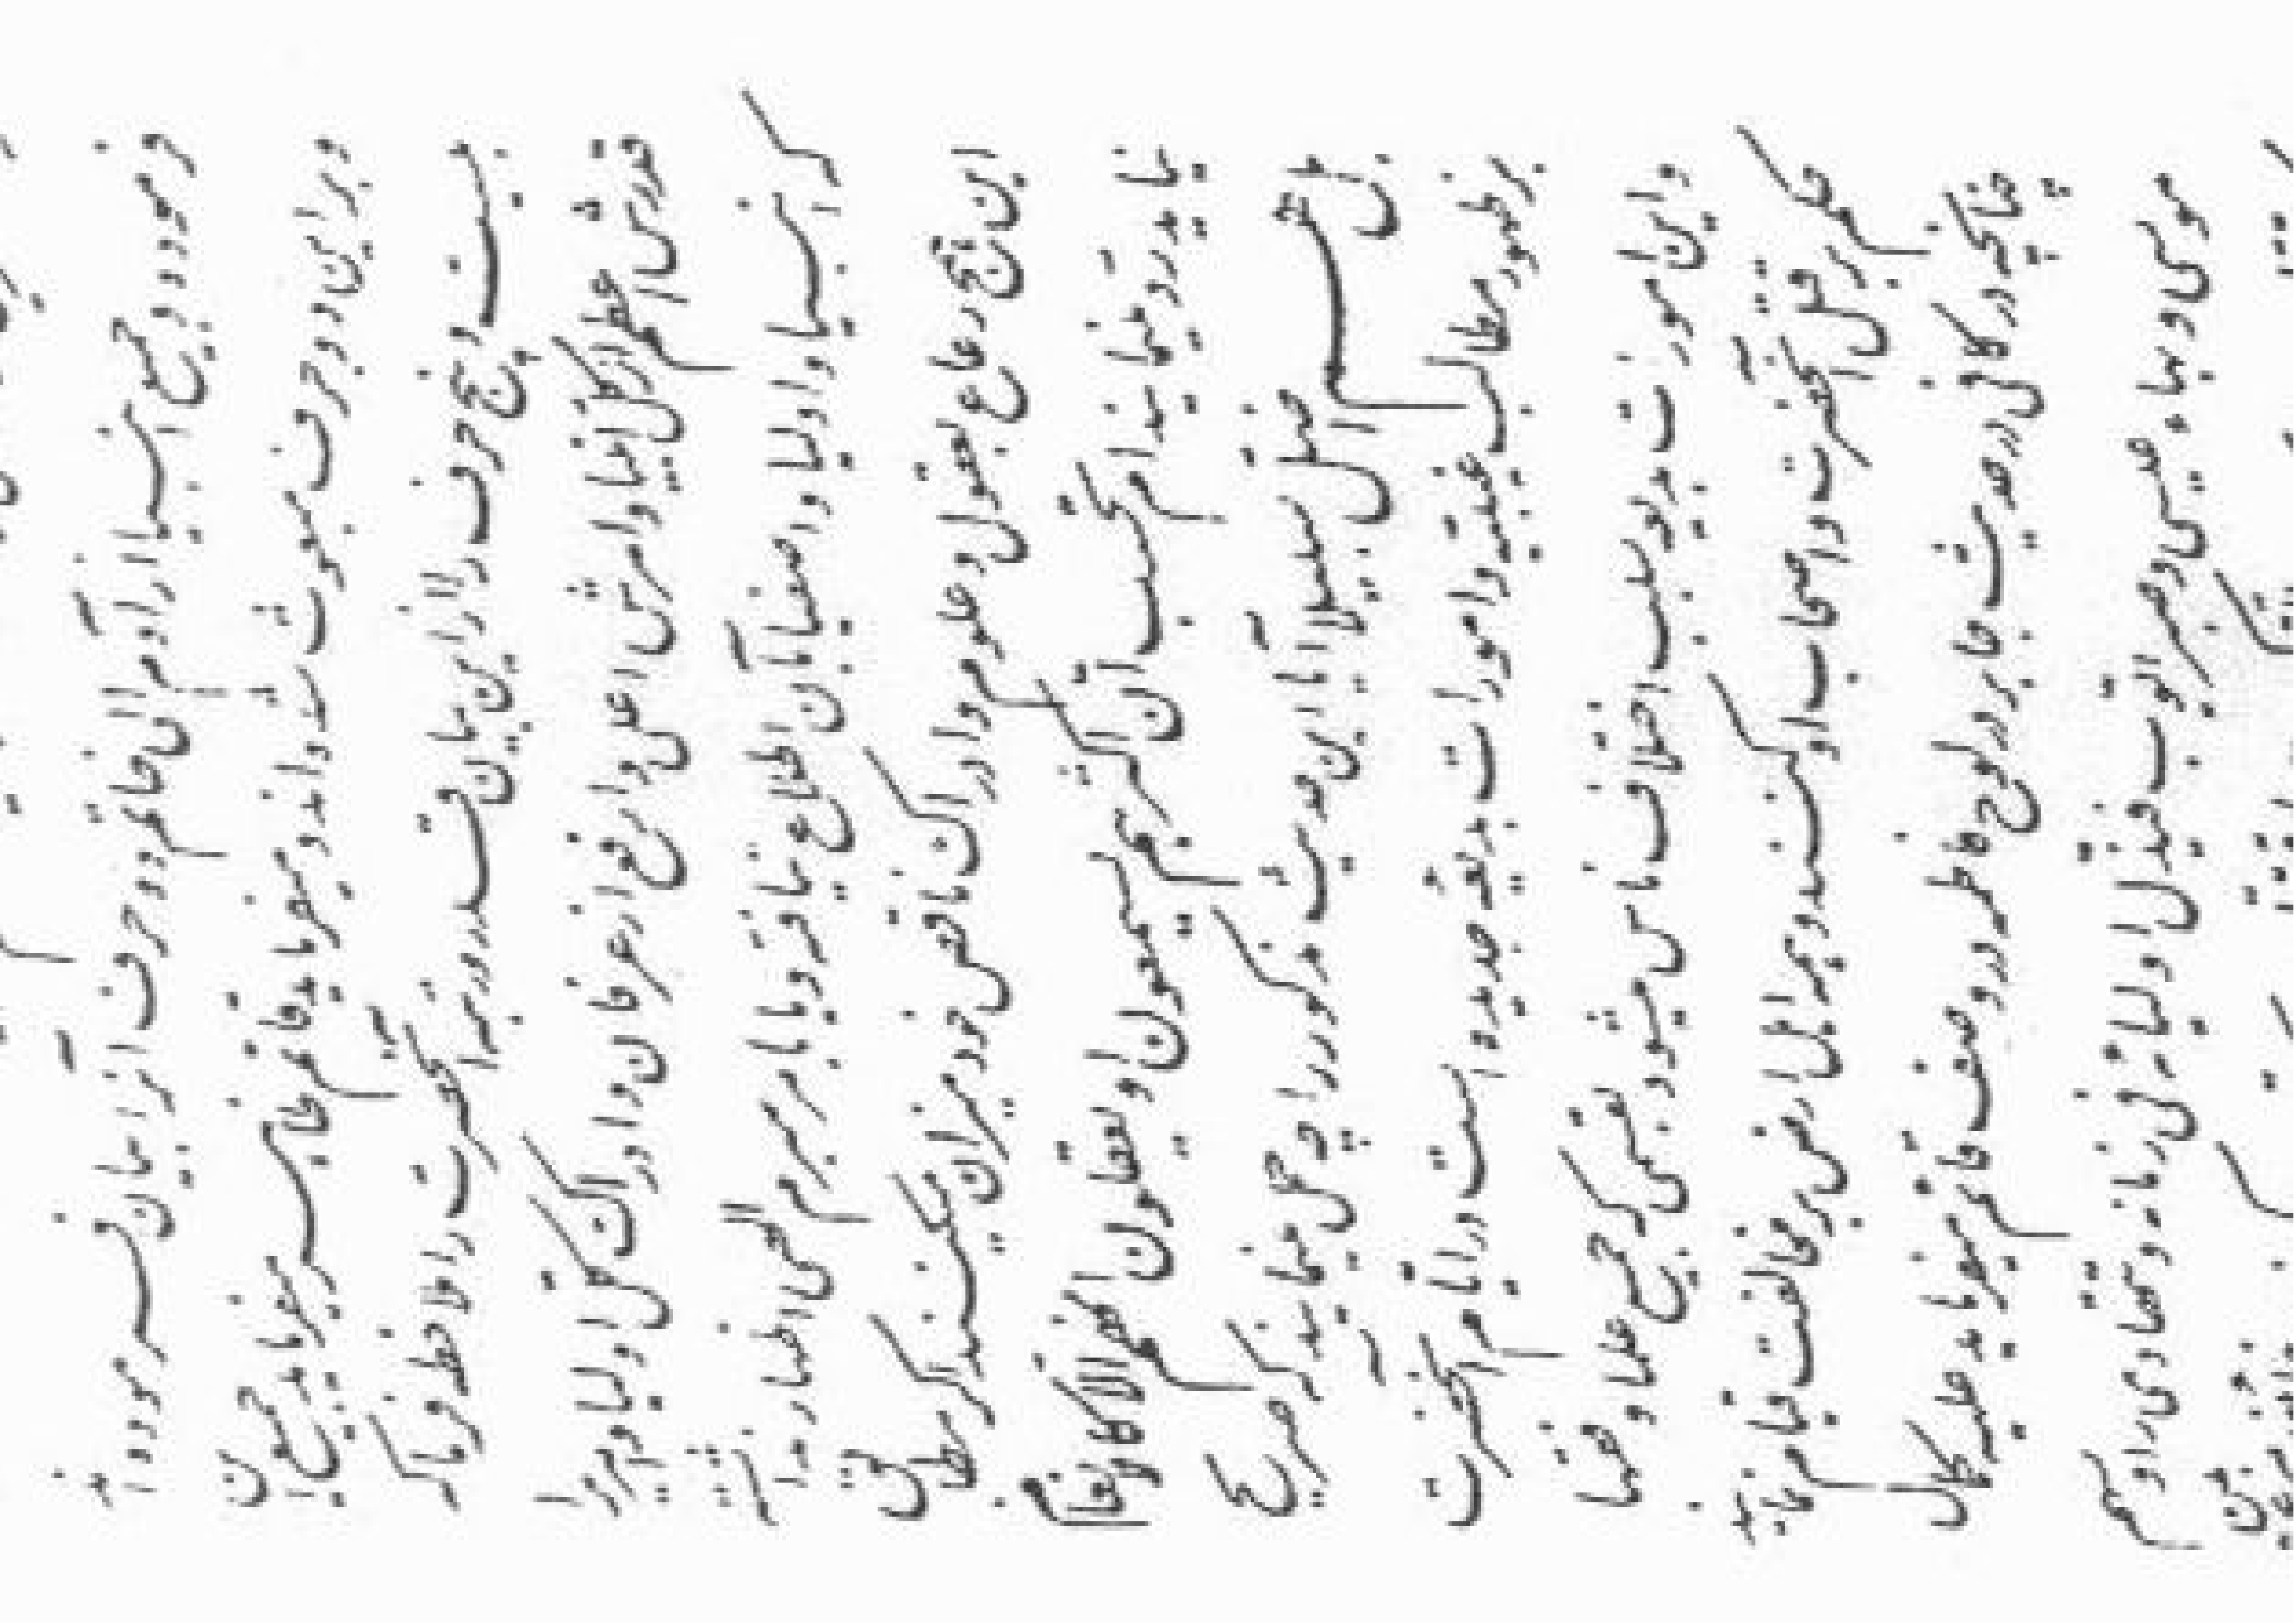 فرموده و جمیع انبیا از آدم الی خاتم دو حرف از آنرا بیان فرمودند
و بر این دو حرف مبعوث شده‌اند و میفرماید قائم ظاهر میفرماید جمیع این
بیست و پنج حرف را از این بیان قدر و رتبهٔ آنحضرت را ملاحظه فرما که
قدرش اعظم از کل انبیا و امرش اعلی و ارفع از عرفان و ادراک کل اولیا و امریرا
که انبیا و اولیا و اصفیا بآن اطلاع نیافته و یا بامر مبرم الهی اظهار نداشته
این همج رعاع بعقول و علوم و ادراک ناقص خود میزان میکنند اگر مطابق
نیاید رد مینمایند ام تحسب ان اکثرهم یسمعون او یعقلون ان هم الا کالانعام
بل هم اضل سبیلا آیا این حدیث مذکور را چه حمل مینمایند که صریح
بر ظهور مطالب غیبیه و امورات بدیعهٔ جدیده است در ایام آنحضرت
و این امورات بدیعه سبب اختلاف ناس میشود بقسمی که جمیع علما و فقها
حکم بر قتل آنحضرت و اصحاب او کنند و همه اهل ارض بر مخالفت قیام نمایند
چنانچه در کافی در حدیث جابر در لوح فاطمه در وصف قائم میفرماید علیه کمال
موسی و بهاء عیسی و صبر ایوب فیذل اولیائه فی زمانه و تتهادی رؤسهم